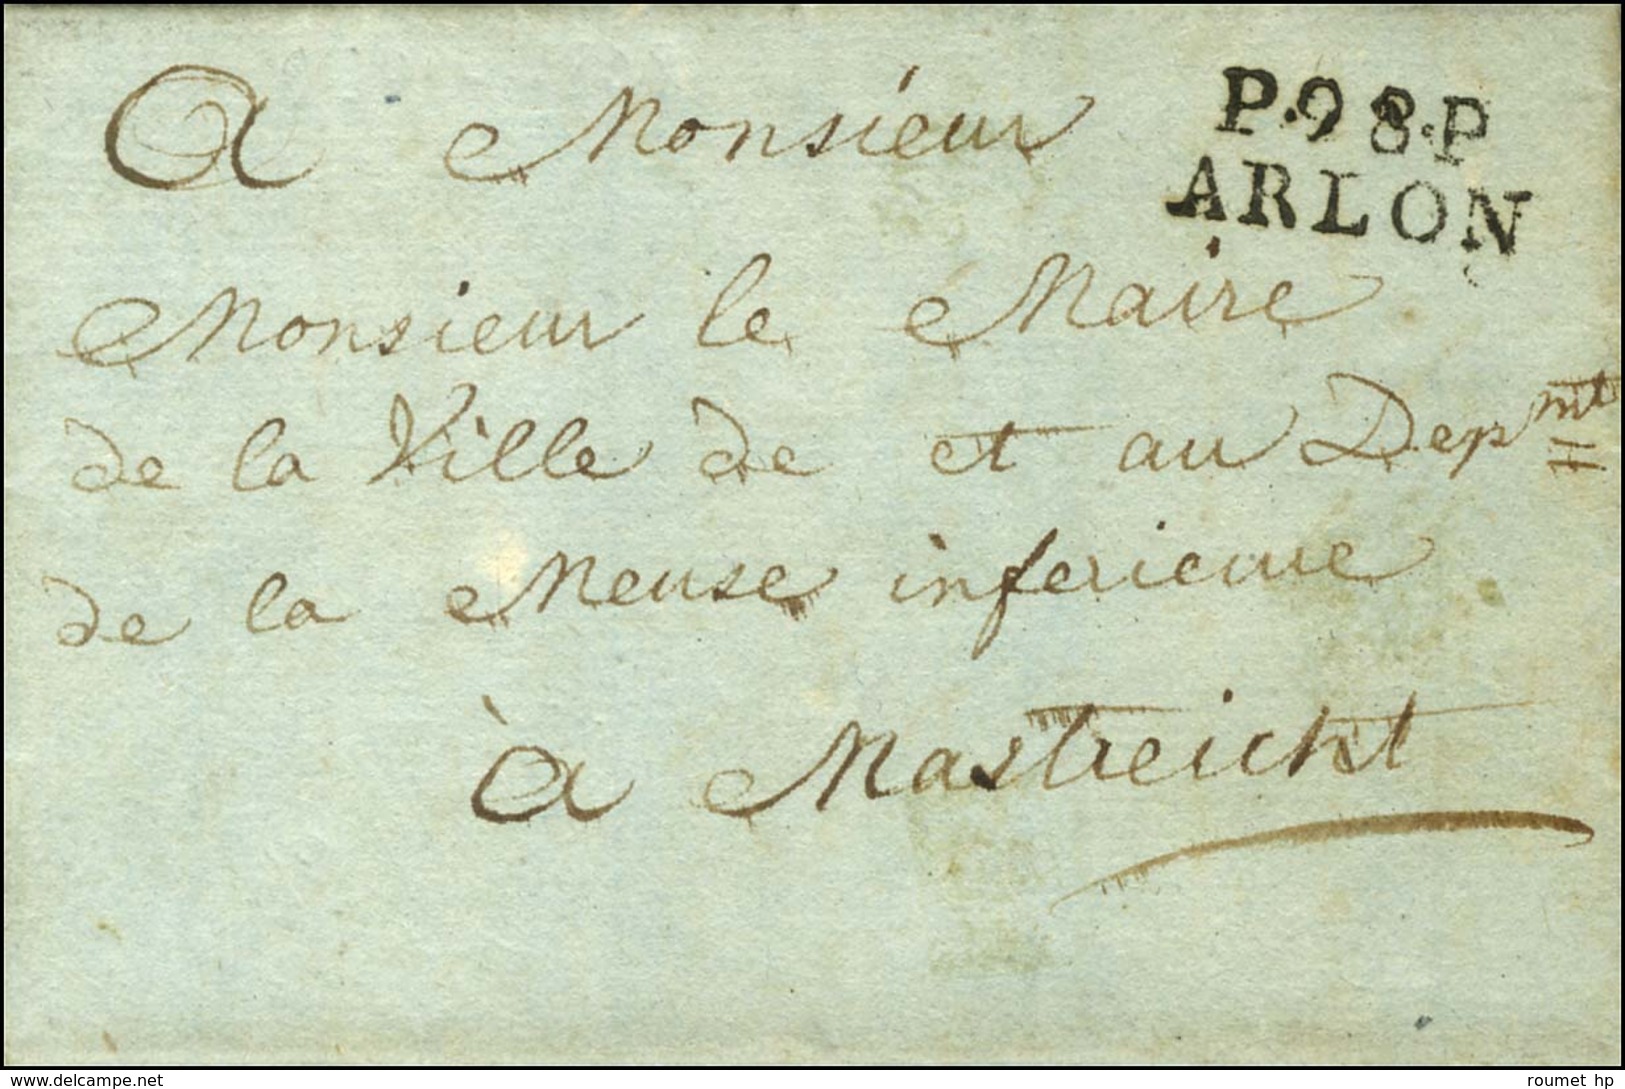 A Monsieur
P.98.P
ARLON
Monsieur le Maire
de la Ville de et au Depmt
de la Meuse inferieure
à Mastreicht
roumet hp